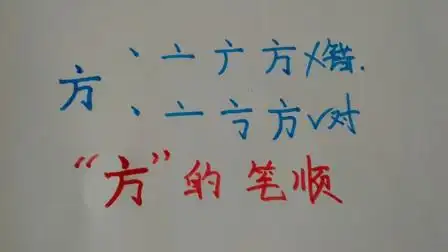 丶 亠 亠丿 方 ×错.
方
丶 亠 亠𠃌 方 √对
“方”的笔顺